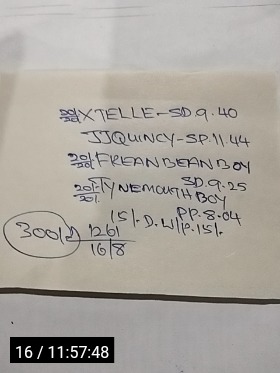 20/-/20/- XTELLE-SD.9.40
JJQUINCY-SP.11.44
20/-/20/- FREAN BEAN BOY
SD.9.25
20/-/20/- TYNEMOUTH BOY
PP.8.04
15/- D.W/P.15/-
300/2
1261
16/8
16 / 11:57:48